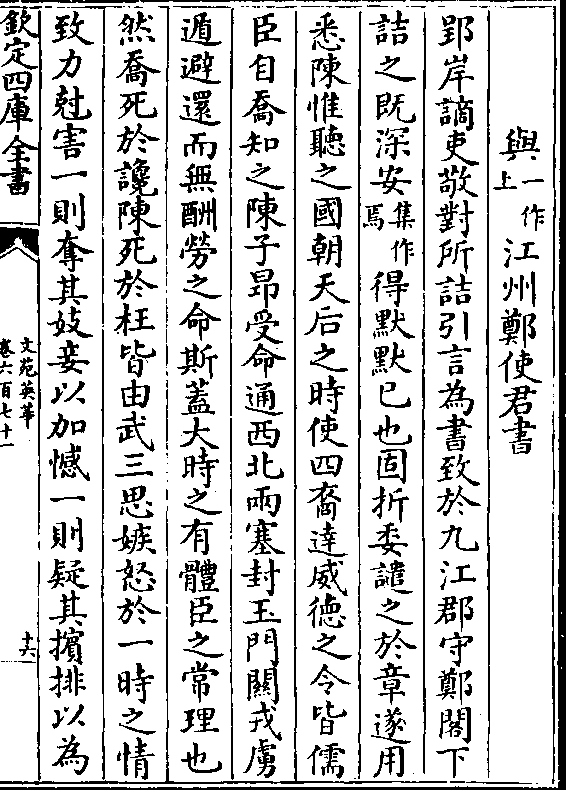 與一作上江州鄭使君書
郢岸謫吏敬對所詰引言為書致於九江郡守鄭閣下
詰之既深安集作焉得默默已也固折委譴之於章遂用
悉陳惟聽之國朝天后之時使四裔達威德之令皆儒
臣自喬知之陳子昂受命通西北兩塞封玉門關戎虜
遁避還而無酬勞之命斯蓋大時之有體臣之常理也
然喬死於讒陳死於枉皆由武三思嫉怒於一時之情
致力尅害一則奪其妓妾以加憾一則疑其擯排以為
欽定四庫全書
文苑英華
卷六百七十一
十六